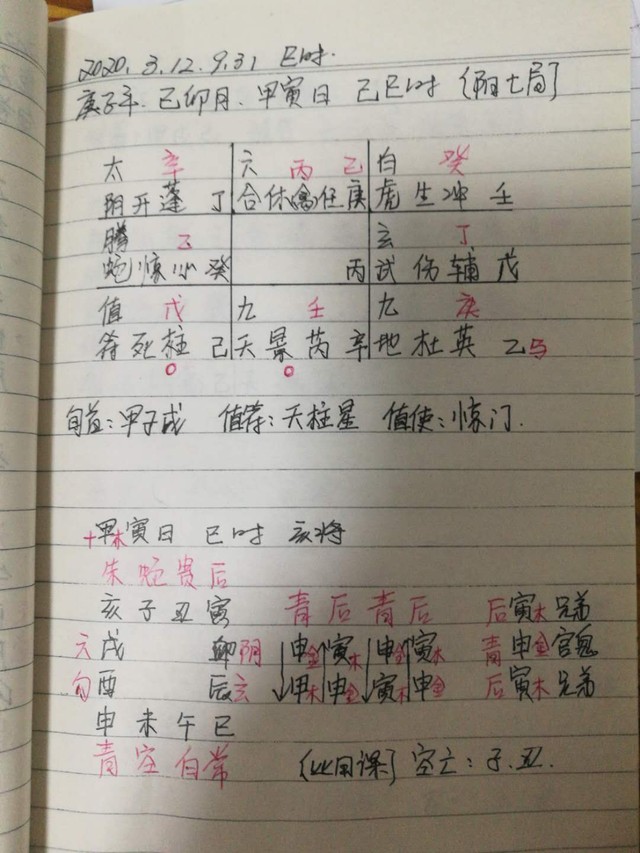 2020.3.12.9.31 巳时.
庚子年.己卯月.甲寅日 己巳时 (阳七局]
太 辛 六 丙 己 白 癸
阴开蓬 丁 合休禽任庚 虎生冲 壬
腾 乙 玄 丁
蛇惊心癸 丙 武伤辅戊
值 戊 九 壬 九 庚
符死柱己 天景芮辛 地杜英 乙马
旬首:甲子戌 值符:天柱星 值使:惊门.
十甲木寅日 巳时 亥将
朱 蛇 贵 后
亥 子 丑 寅 青 后 青 后 后寅木兄弟
六戌 卯阴 申金寅木申金寅木 青申金官鬼
勾酉 辰玄 甲木申金寅木申金 后寅木兄弟
申 未 午 巳
青 空 白 常 (比用课] 空亡:子.丑.